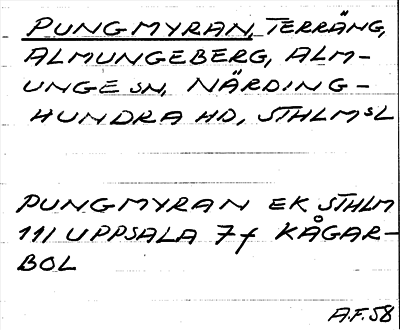 PUNGMYRAN, TERRÄNG,
ALMUNGEBERG, ALM-
UNGE SN, NÄRDING-
HUNDRA HD, STHLMSL
PUNGMYRAN EK STHLM
111 UPPSALA 7f KÅGAR-
BOL
A.F.58